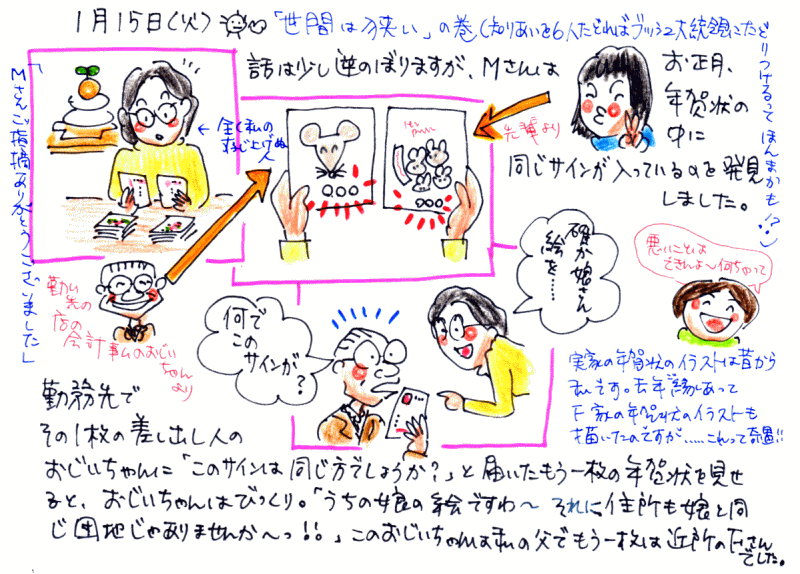 1月15日(火) 「世間は狭い」の巻(知りあいを6人たどればブッシュ大統領にたどりつけるってほんまかも!?)
話は少し逆のぼりますが、Mさんは
お正月、
年賀状の
中に
同じサインが入っているのを発見
しました。
「Mさんご指摘ありがとうございました」
←全く私の
人
先輩より
勤め先の
店の
会計事ムのおじい
ちゃんより
何で
この
サインが?
確か娘さん
絵を……
悪いことは
できんよ〜何ちゃって
実家の年賀状のイラストは昔から
私です。去年ご縁があって
F家の年賀状のイラストも
描いたのですが……これって奇遇!!
勤務先で
その1枚の差し出し人の
おじいちゃんに「このサインは同じ方でしょうか?」と届いたもう一枚の年賀状を見せ
ると、おじいちゃんはびっくり。「うちの娘の絵ですわ〜それに、住所も娘と同
じ団地じゃありませんか〜っ!!」このおじいちゃんは私の父でもう一枚は近所のFさん
でした。